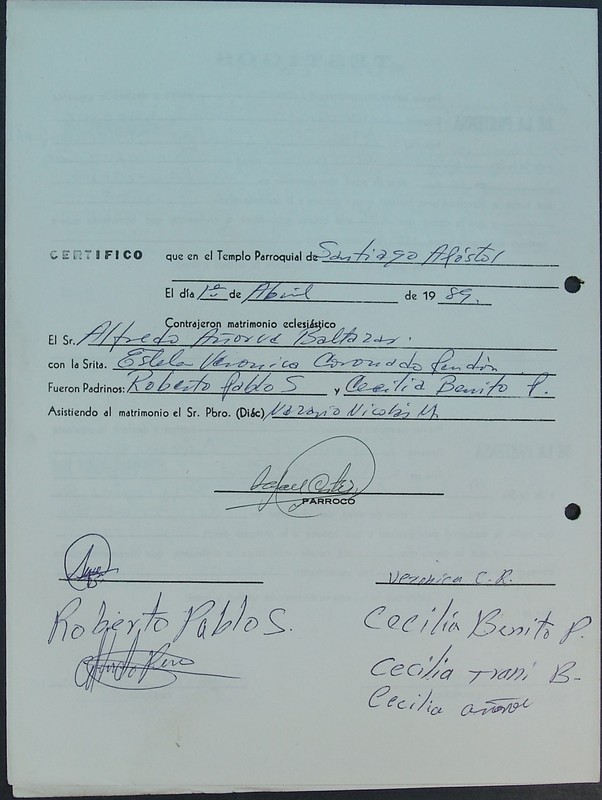 CERTIFICO que en el Templo Parroquial de Santiago Apóstol
El día 1º de Abril de 1989.
Contrajeron matrimonio eclesiástico
El Sr. Alfredo Añorve Baltazar.
con la Srita. Estela Veronica Coronado Rendón
Fueron Padrinos: Roberto Pablo S y Cecilia Benito P.
Asistiendo al matrimonio el Sr. Pbro. (Diác) Nazario Nicolás M.
PARROCO
Veronica C. R.
Roberto Pablo S. Cecilia Benito P.
Cecilia Trani B-
Cecilia añorve